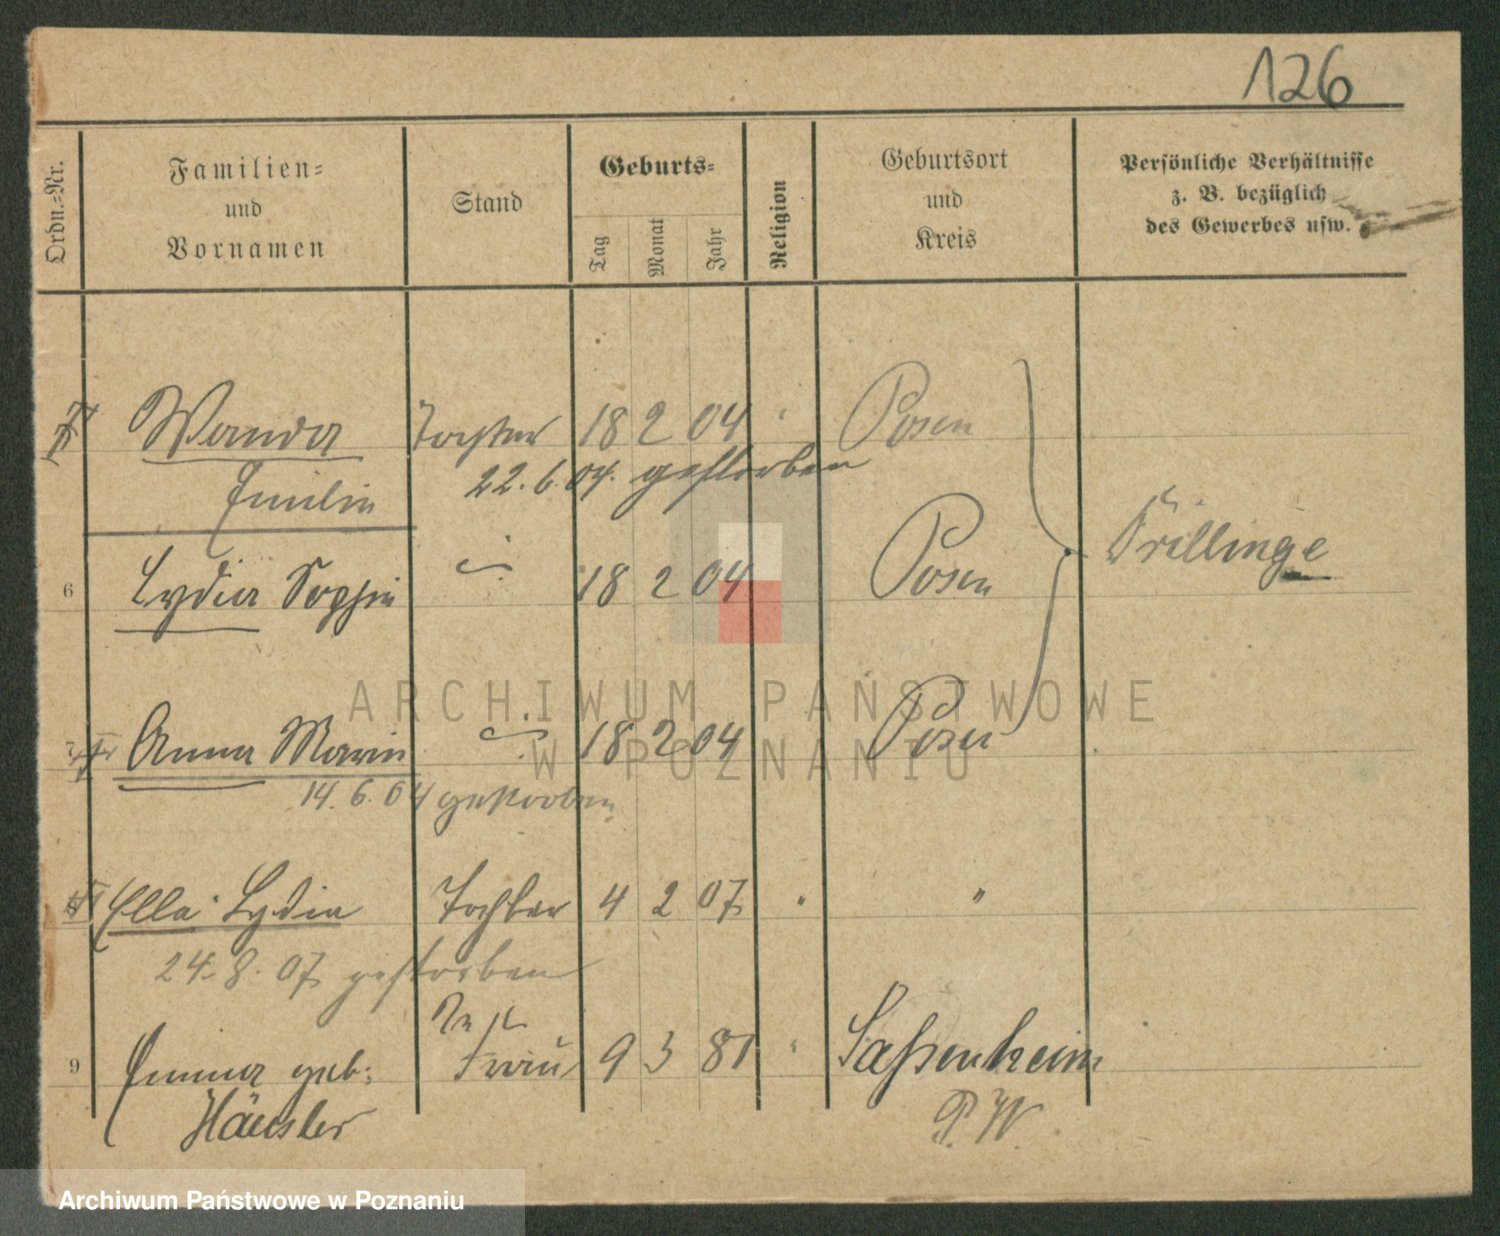 126
Ordn.-Nr.
Familien-
und
Vornamen
Stand
Geburts-
Tag
Monat
Jahr
Religion
Geburtsort
und
Kreis
Persönliche Verhältnisse
z. B. bezüglich
des Gewerbes usw.
Wanda Tochter 18 2 04 " Posen
Emilie 22.6.04. gestorben
6 Lydia Sophie 18 2 04 Posen Drillinge
7 Anna Marie 18 2 04 Posen
14.6.04 gestorben
Ella Lydia Tochter 4 2 07 " "
24.8.07 gestorben
9 Emma geb: Frau 9 3 81 " Sassenheim
Häusler P.W.
ARCHIWUM PAŃSTWOWE
W POZNANIU
Archiwum Państwowe w Poznaniu